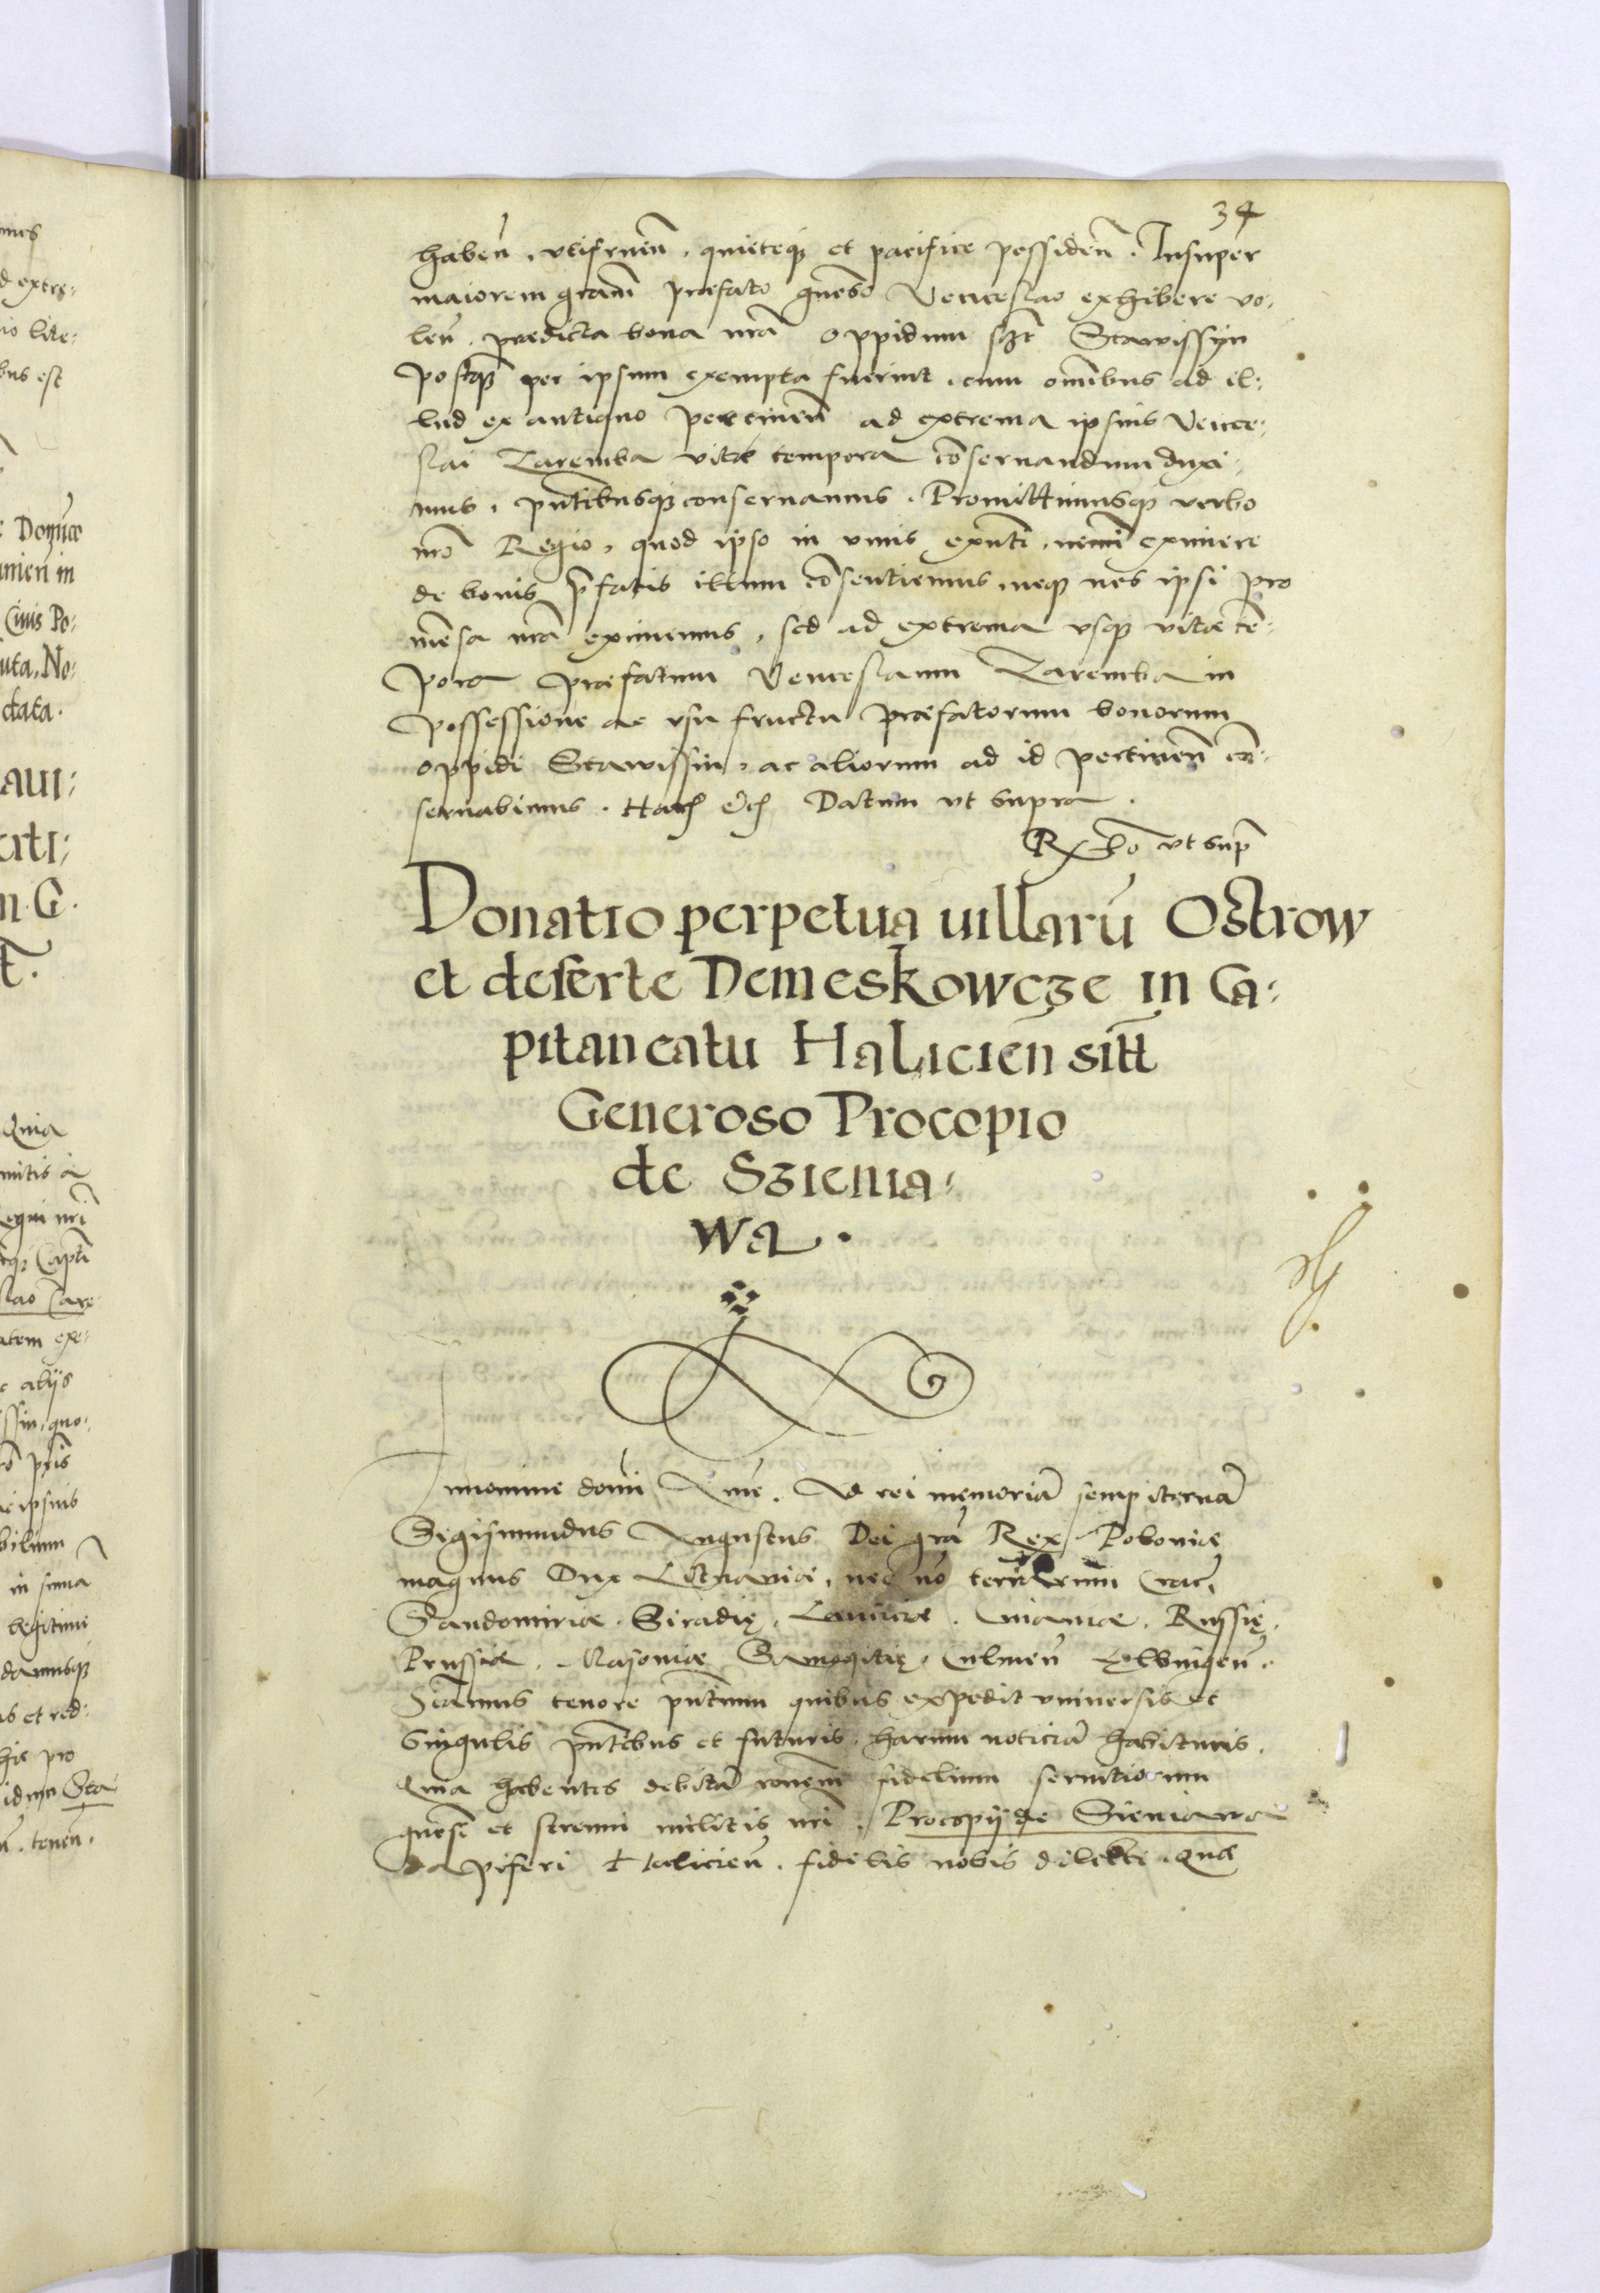 34
haben̄, vtifruen̄, quieteqꝫ et pacifice possiden̄. Insuper
maiorem gratiam praefato gn̄eroso Venceslao exhibere vo-
len̄. praedicta bona nr̄a oppidum sczt Stawissyn
postqꝫ per ipsum exempta fuerint, cum omībus ad il-
lud ex antiquo pertinen̄ ad extrema ipsius Vence-
slai Zaremba vitae tempora cōseruandum duxi-
mus, pn̄tibusqꝫ conseruamus. Promittimusqꝫ verbo
nr̄o Regio, quod ipso in viuis exn̄te, nemini eximere
de bonis p̄fatis illum cōsentiemus, neqꝫ nos ipsi pro
mēsa nr̄a eximemus, sed ad extrema vsqꝫ vitae tē-
pora praefatum Venceslaum Zaremba in
possessione ac vsu fructu praefatorum bonorum
oppidi Stawissin, ac aliorum ad id pertinen̄ cō-
seruabimus. Har̄ Etc̄ Datum vt supra.
vt sup̄
Donatio perpetua uillarū Ostrow
et deserte Demeskowcze in Ca-
pitaneatu Halicien̄ sitt̄
Generoso Procopio
de Szienia-
wa.
In nomine domī Amē. Ad rei memoriā sempiternā
Sigismundus Augustus Dei grā Rex Poloniæ
magnus Dux Lituaniæ, nec nō terrarum Crac̄,
Sandomiriæ, Siradię, Lanciciæ, Cuiauiæ, Russię,
Prussiæ, Masouiæ Samogitię, Culmen̄ Elbingen̄.
tenore pn̄tium quibus expedit vniuersis et
singulis pn̄tibus et futuris, harum noticiā habituris.
Quia habentes debitā ronem̄ fidelium seruitiorum
gn̄osi et strenui militis nr̄i, Procopij de Sieniawa
dapiferi Halicien̄. fidelis nobis dilecti. Quæ